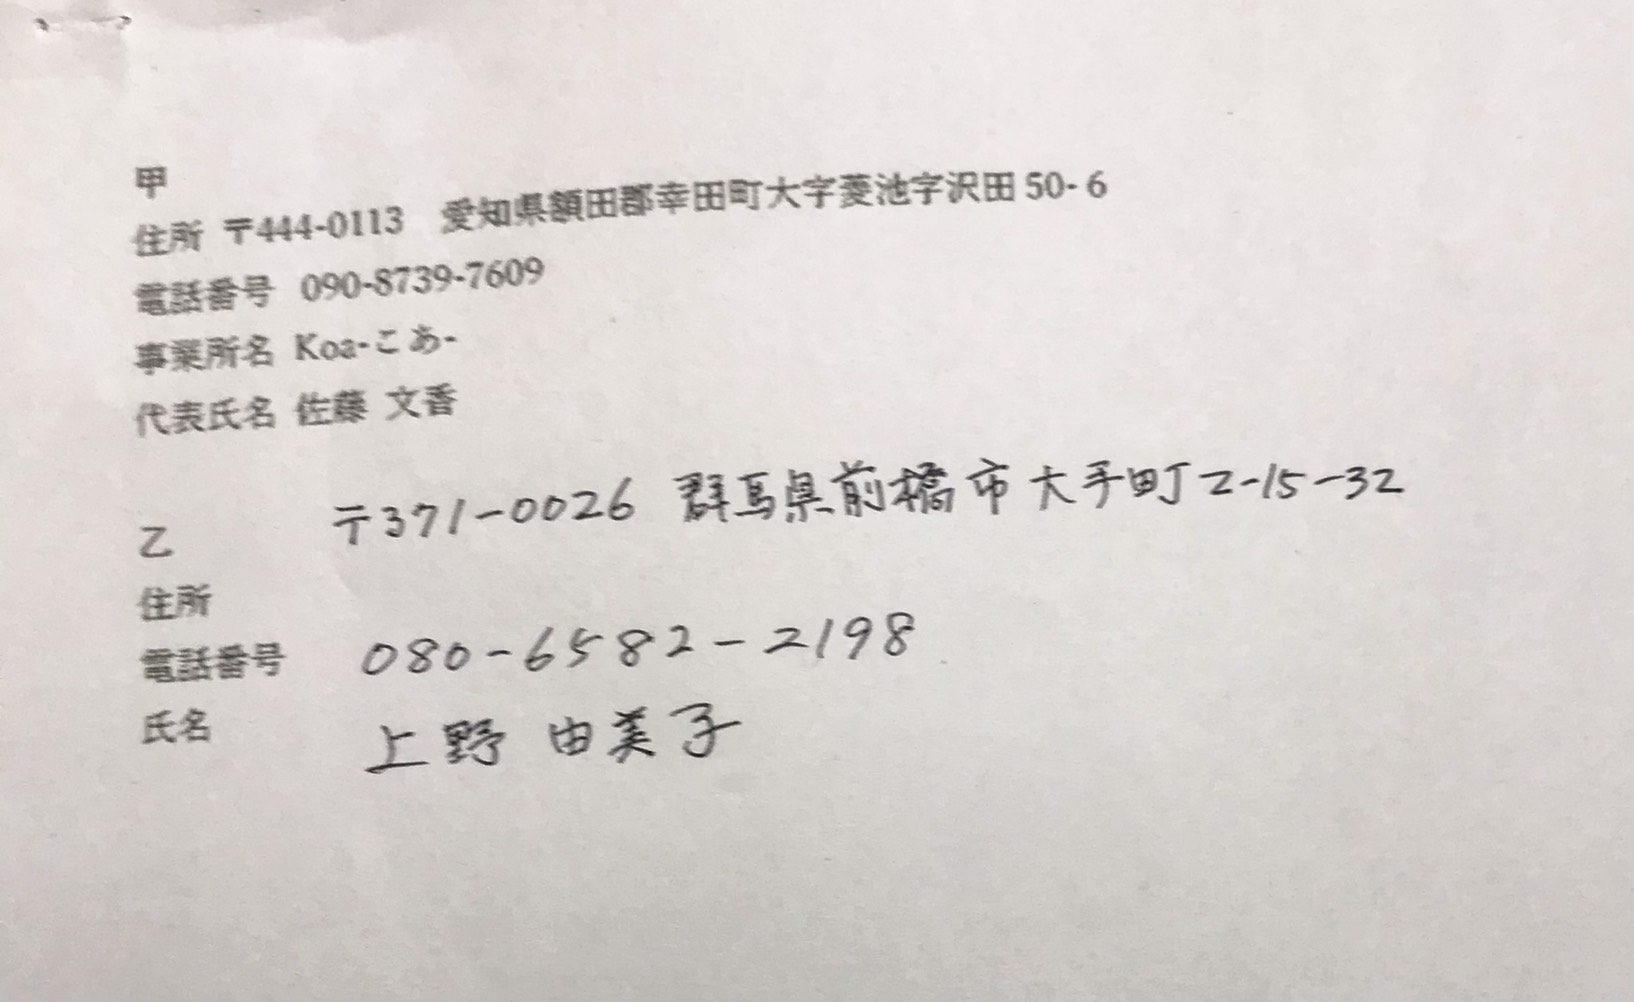 甲
住所 〒444-0113　愛知県額田郡幸田町大字菱池字沢田 50- 6
電話番号 090-8739-7609
事業所名 Koa-こあ-
代表氏名 佐藤 文香
〒371-0026 群馬県前橋市大手町2-15-32
乙
住所
電話番号 080-6582-2198
氏名 上野 由美子